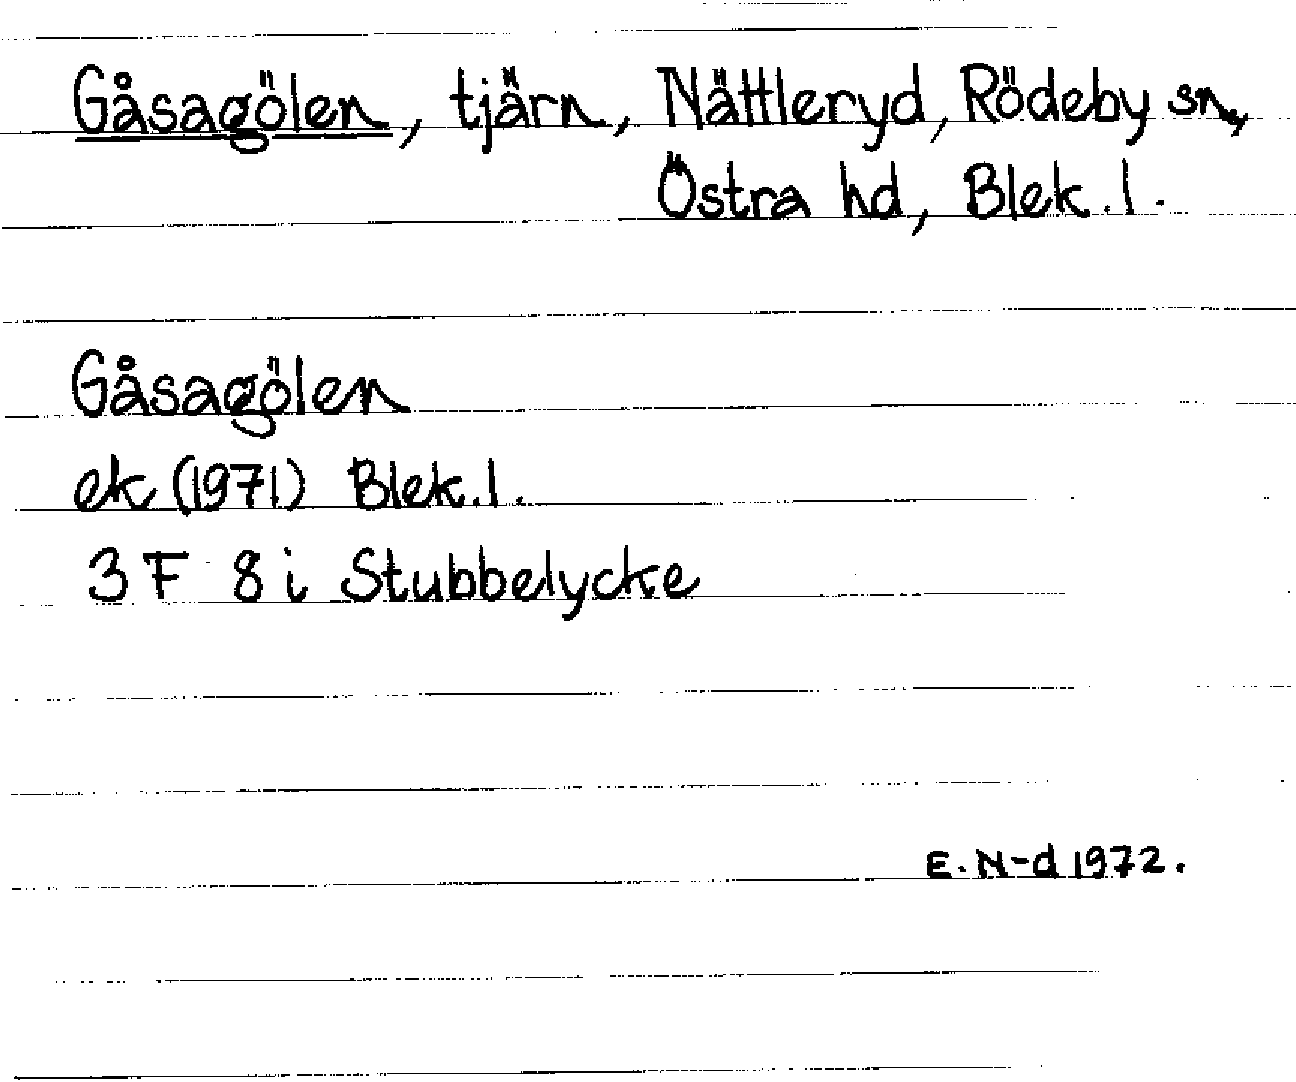 Gåsagölen, tjärn, Nättleryd, Rödeby sn,
Östra hd, Blek. l.
Gåsagölen
ek (1971) Blek. l.
3 F 8 i Stubbelycke
E. N-d 1972.